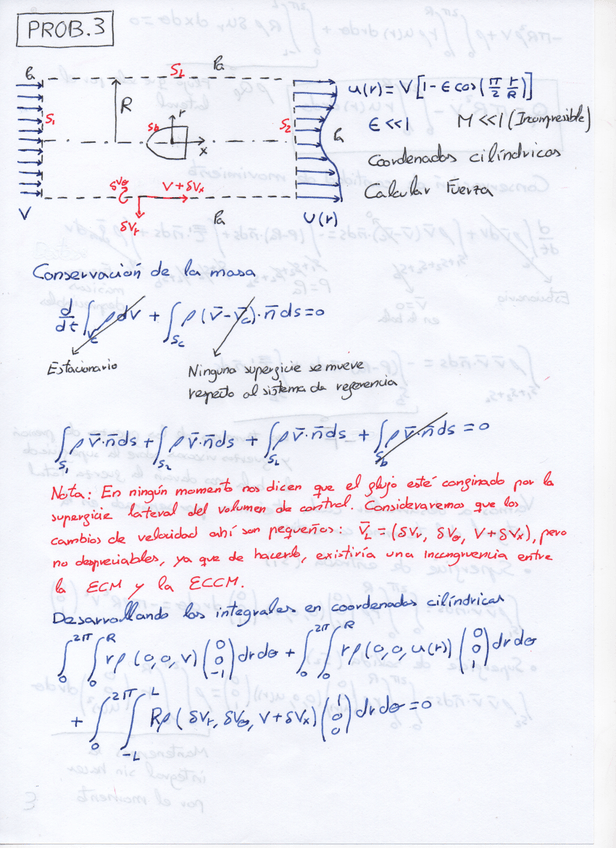 PROB.3
Pa
SL
Pa
u(r) = V[1 - ε cos(π/2 r/R)]
S1
R
Sb
r
x
S2
Pa
ε<<1 M<<1 (Incompresible)
Coordenadas cilíndricas
Calcular Fuerza
δVθ
V+δVx
δVr
Pa
V
U(r)
Conservación de la masa
d/dt ∫Vc ρdV + ∫Sc ρ(v̄-v̄c)·n̄ ds = 0
Estacionario
Ninguna superficie se mueve
respecto al sistema de referencia
∫S1 ρ v̄·n̄ ds + ∫S2 ρ v̄·n̄ ds + ∫SL ρ v̄·n̄ ds + ∫Sb ρ v̄·n̄ ds = 0
Nota: En ningún momento nos dicen que el flujo esté confinado por la
superficie lateral del volumen de control. Consideraremos que los
cambios de velocidad ahí son pequeños: V̄L = (δVr, δVθ, V+δVx), pero
no despreciables, ya que de hacerlo, existiría una incongruencia entre
la ECM y la ECCM.
Desarrollando las integrales en coordenadas cilíndricas
∫0^2π ∫0^R rρ (0,0,V) (0 0 -1) dr dθ + ∫0^2π ∫0^R rρ (0,0,u(r)) (0 0 1) dr dθ
+ ∫0^2π ∫-L^L Rρ (δVr, δVθ, V+δVx) (1 0 0) dr dθ = 0